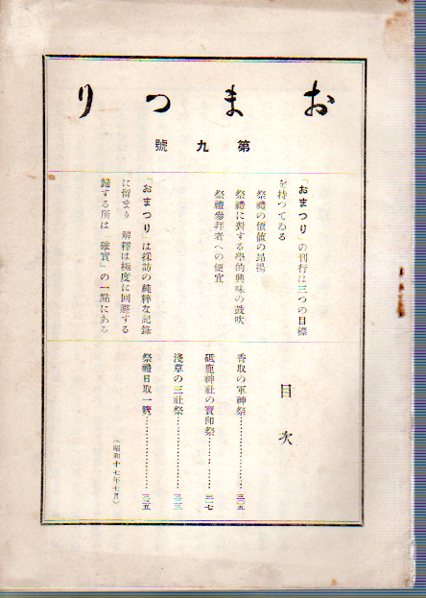 おまつり
第九號
「おまつり」の刊行は三つの目標
を持つてゐる
祭禮の價値の昂揚
祭禮に對する學的興味の鼓吹
祭禮參拜者への便宜
「おまつり」は採訪の純粹な記錄
に留まり 解釋は極度に回避する
歸する所は「確實」の一點にある
目次
香取の軍神祭…………三〇五
砥鹿神社の寶印祭…………三一七
淺草の三社祭…………三二三
祭禮日取一覽…………三三五
（昭和十七年七月）